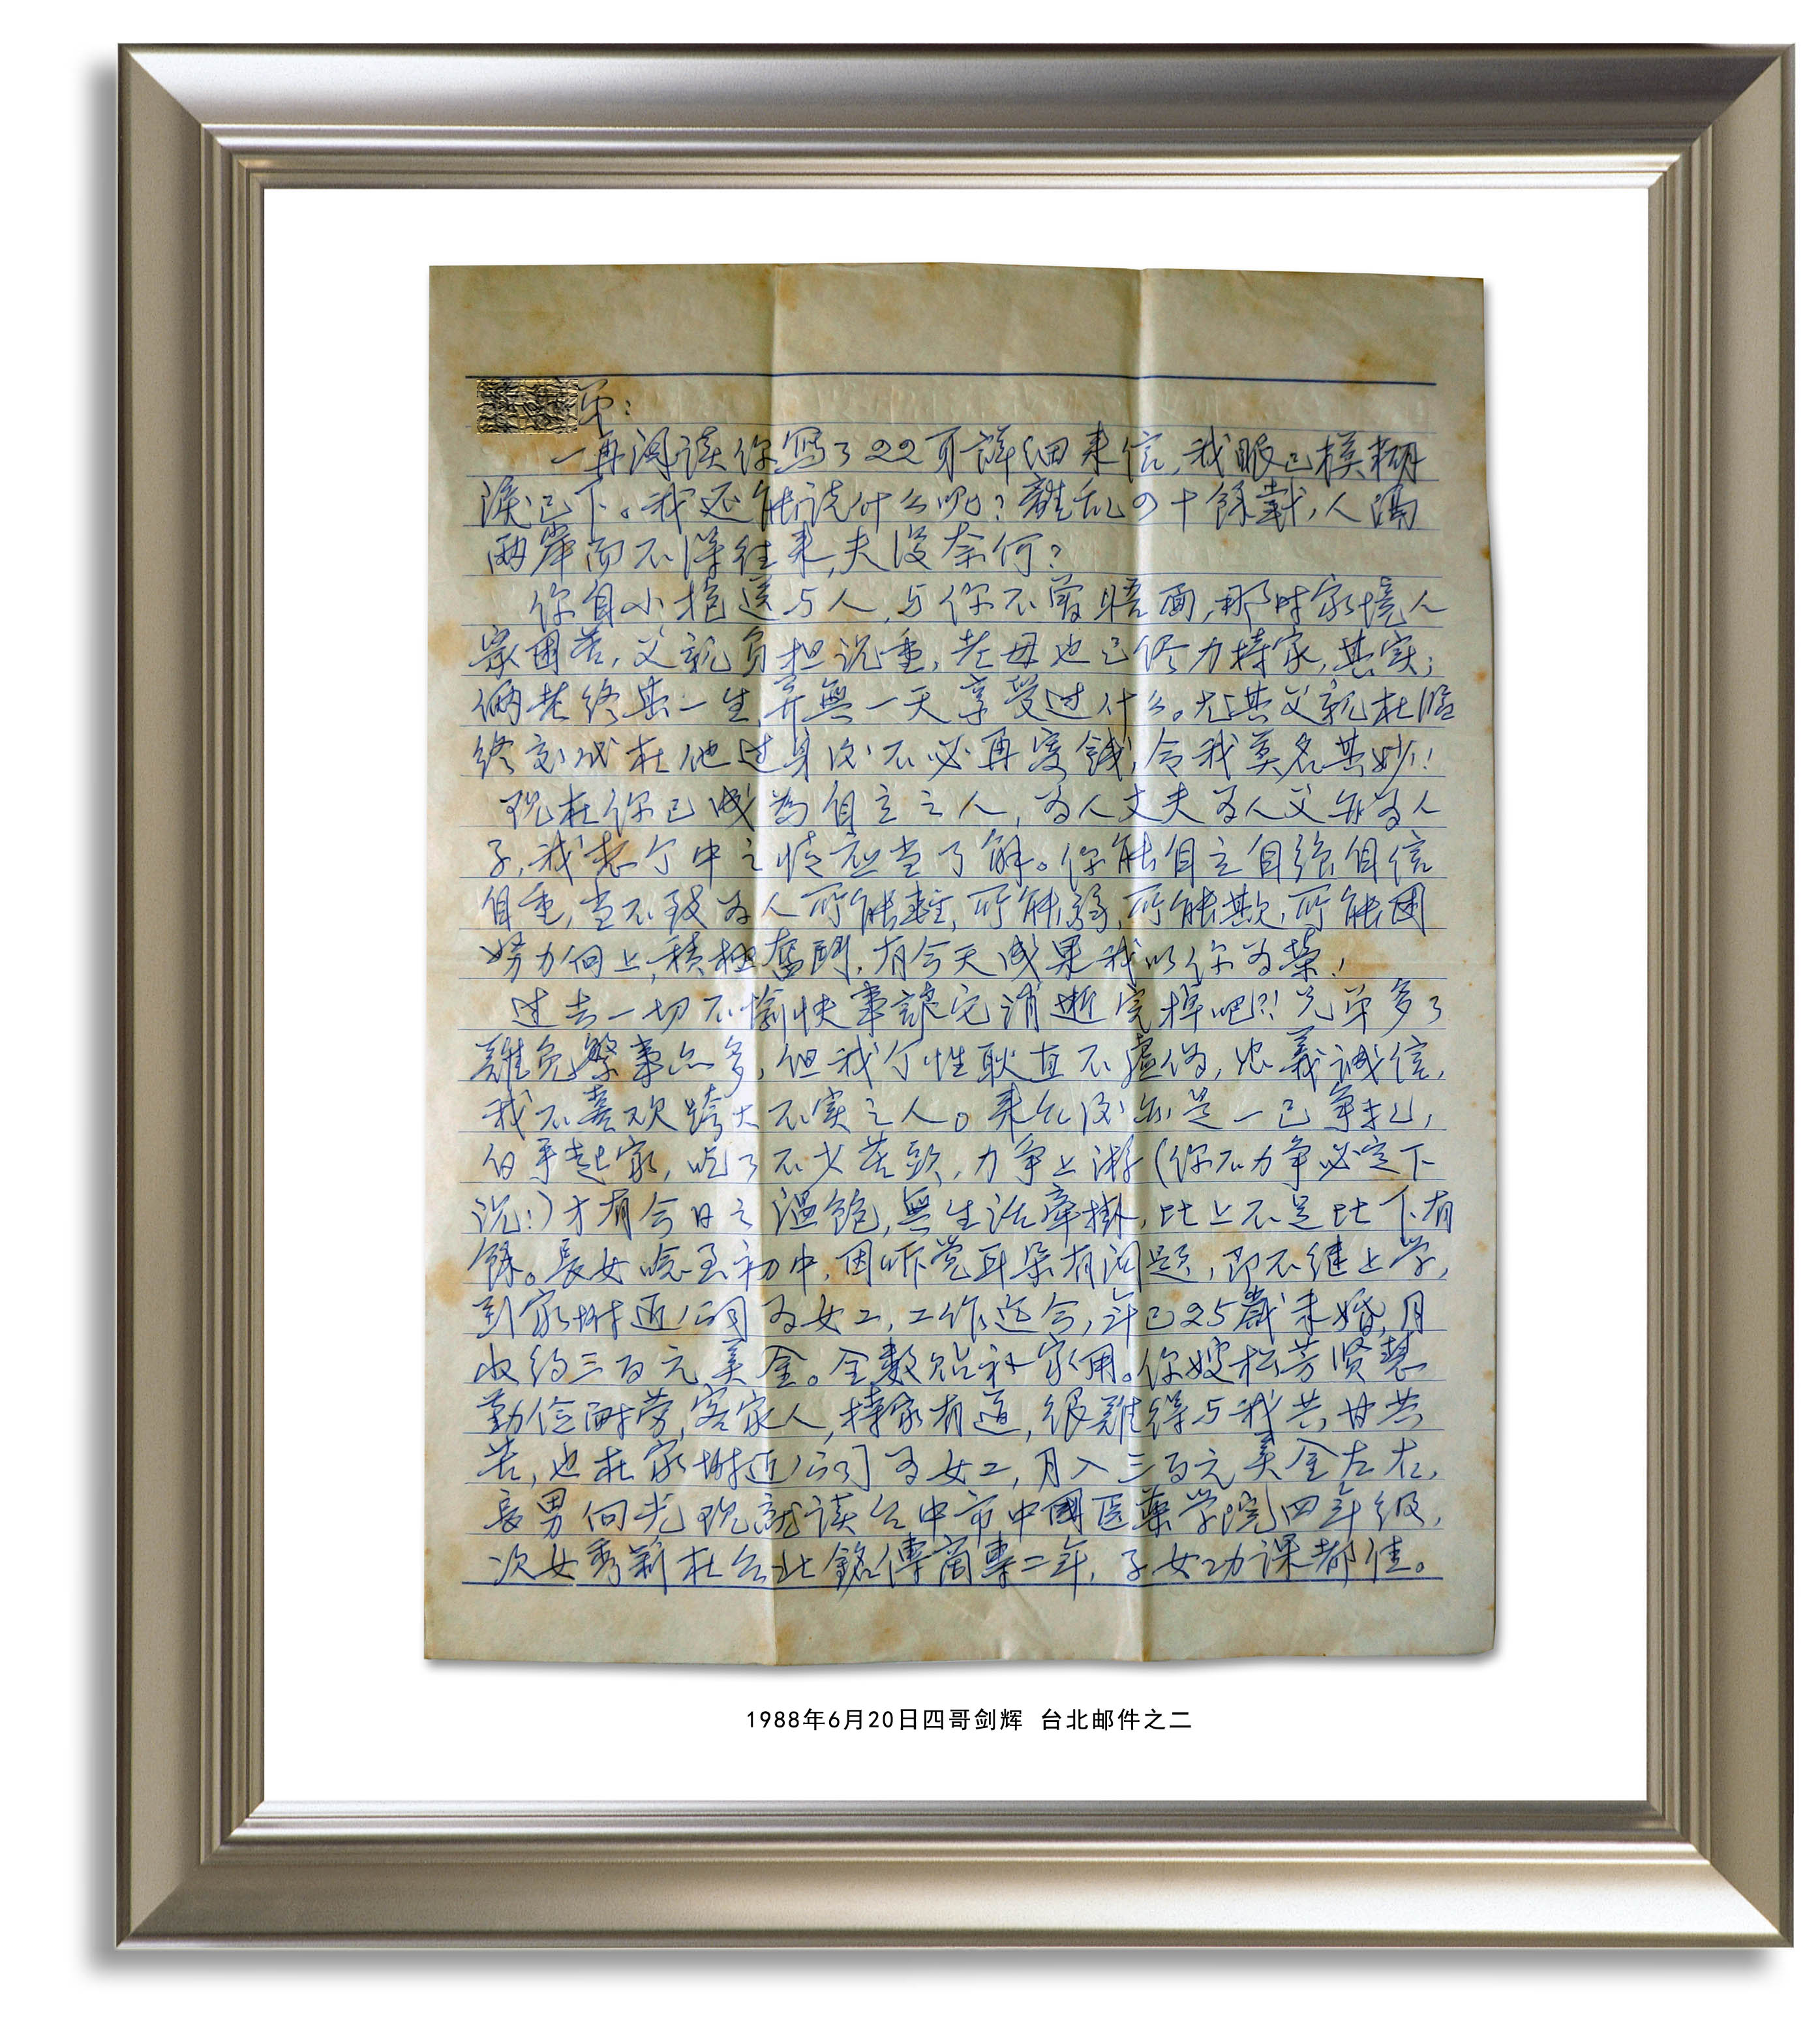 弟：
一再阅读你写了22页詳细来信，我眼已模糊
淚已下。我还能说什么呢？離乱四十餘載，人隔
兩岸而不得往来，夫復奈何？
你自小抱送与人，与你不曾晤面，那时家境人
家困苦，父親负担沉重，老母也已尽力持家，其实；
俩老终其一生，并無一天享受过什么。尤其父親在临
终交代在他过身后不必再寄錢，令我莫名其妙！
现在你已成为自立之人，为人丈夫为人父亦为人
子，我想个中之情应当了解。你能自立自强自信
自重，当不致为人所能，所能，所能欺，所能困
努力向上，積極奮鬥，有今天成果我以你为荣！
过去一切不愉快事讓它消逝完掉吧？！兄弟多了
難免繁事亦多，但我个性耿直不虚伪，忠義诚信，
我不喜欢誇大不实之人。来台后亦是一己争扎，
白手起家，吃了不少苦頭，力争上游（你不力争必定下
沉！）才有今日之温飽，無生活牽掛，比上不足比下有
餘。長女唸至初中，因听觉耳朵有问题，即不继上学，
到家附近公司为女工，工作迄今，年已25歲未婚，月
收约三百元美金。全數贴补家用。你嫂松芳贤慧
勤俭耐劳，客家人，持家有道，很難得与我共甘共
苦，也在家附近公司为女工，月入三百元美金左右，
長男何光现就读台中市中國医藥学院四年级，
次女秀莉在台北銘傳商專二年，子女功课都佳。
1988年6月20日四哥剑辉 台北邮件之二